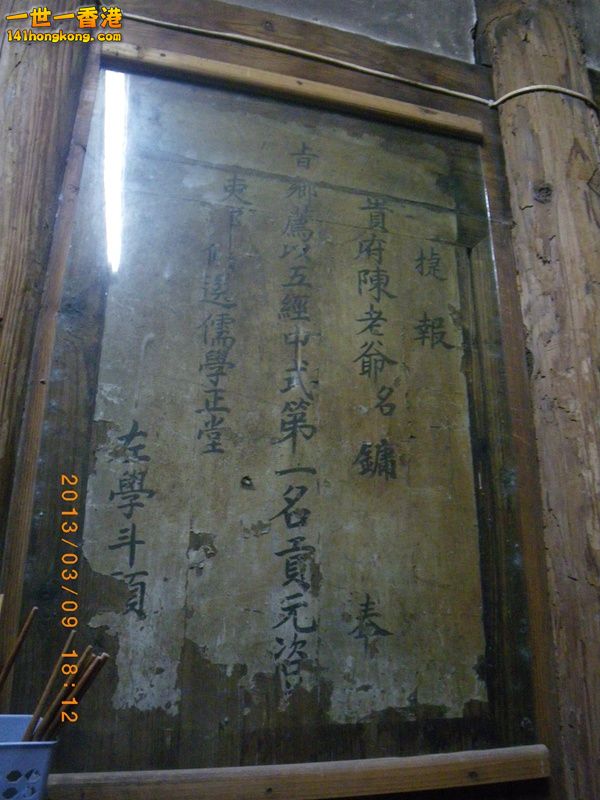 一世一香港
141hongkong.com
捷報
貴府陳老爺名鏞 奉
旨鄉薦以五經中式第一名貢元咨
吏部 選儒學正堂
在學斗頭
2013/03/09 18:12